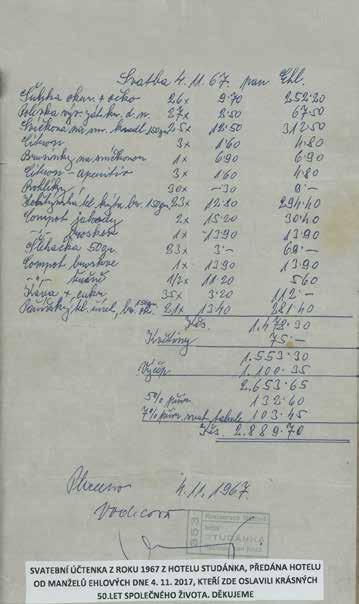 Svatba 4.11.67. pan Ehl.
26x 9.70 252.20
27x 2.50 67.50
Svíčková na sm. knedl. 150gr. 25x 12.50 312.50
Citron 3x 1.60 4.80
Brusinky na svíčkovou 1x 6.90 6.90
Citron - aperitiv 3x 1.60 4.80
Rohlíky 30x -.30 9.-
150gr 23x 12.80 294.40
Compot jahody 2x 15.20 30.40
-"- broskve 1x 13.90 13.90
Šlehačka 50gr. 23x 3.- 69.-
Compot broskve 1x 13.90 13.90
-"- 1/2x 11.20 5.60
Káva + cukr 35x 3.20 112.-
21x 13.40 281.40
Kčs 1.478.30
Květiny 75.-
1.553.30
Výčep 1.100.35
2.653.65
5% 132.60
7% svat. tabule 103.45
Kčs 2.889.70
Placeno 4.11.1967.
Vodicová
353
STUDÁNKA
SVATEBNÍ ÚČTENKA Z ROKU 1967 Z HOTELU STUDÁNKA, PŘEDÁNA HOTELU
OD MANŽELŮ EHLOVÝCH DNE 4. 11. 2017, KTEŘÍ ZDE OSLAVILI KRÁSNÝCH
50.LET SPOLEČNÉHO ŽIVOTA. DĚKUJEME